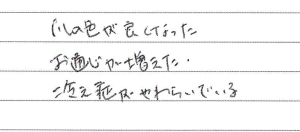 の色が良くなった
お通じが増えた.
冷え がやわらいでいる